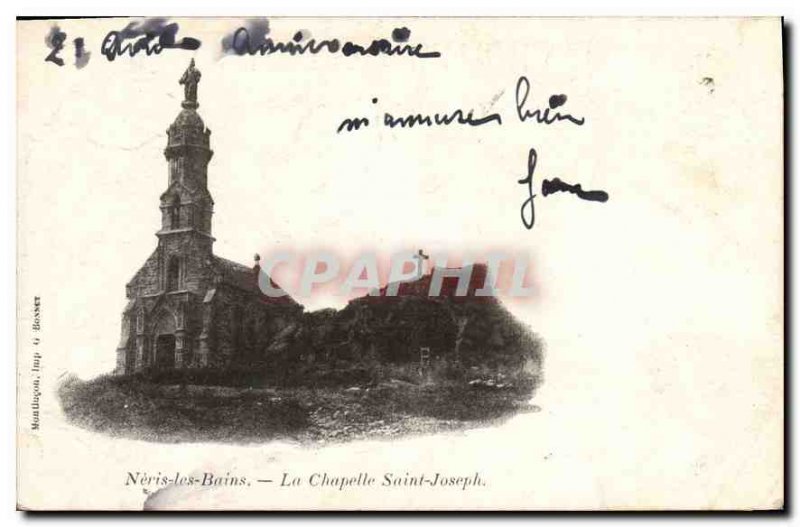 21 Anniversaire
m'amuse bien
CPARPHIL
Montluçon, Imp G Bosset
Néris-les-Bains. — La Chapelle Saint-Joseph.